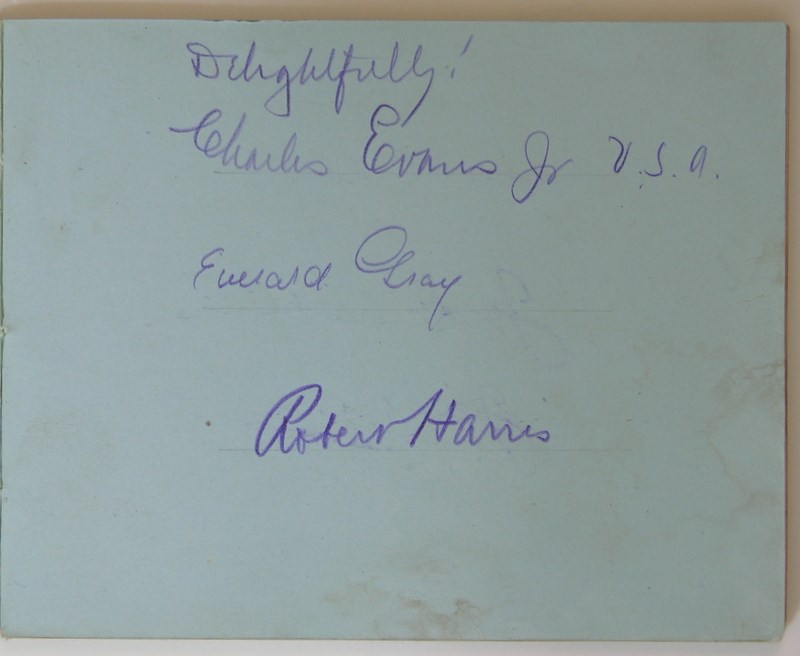 Delightfully!
Charles Evans Jr U.S.A.
Everard Gray
Robert Harris